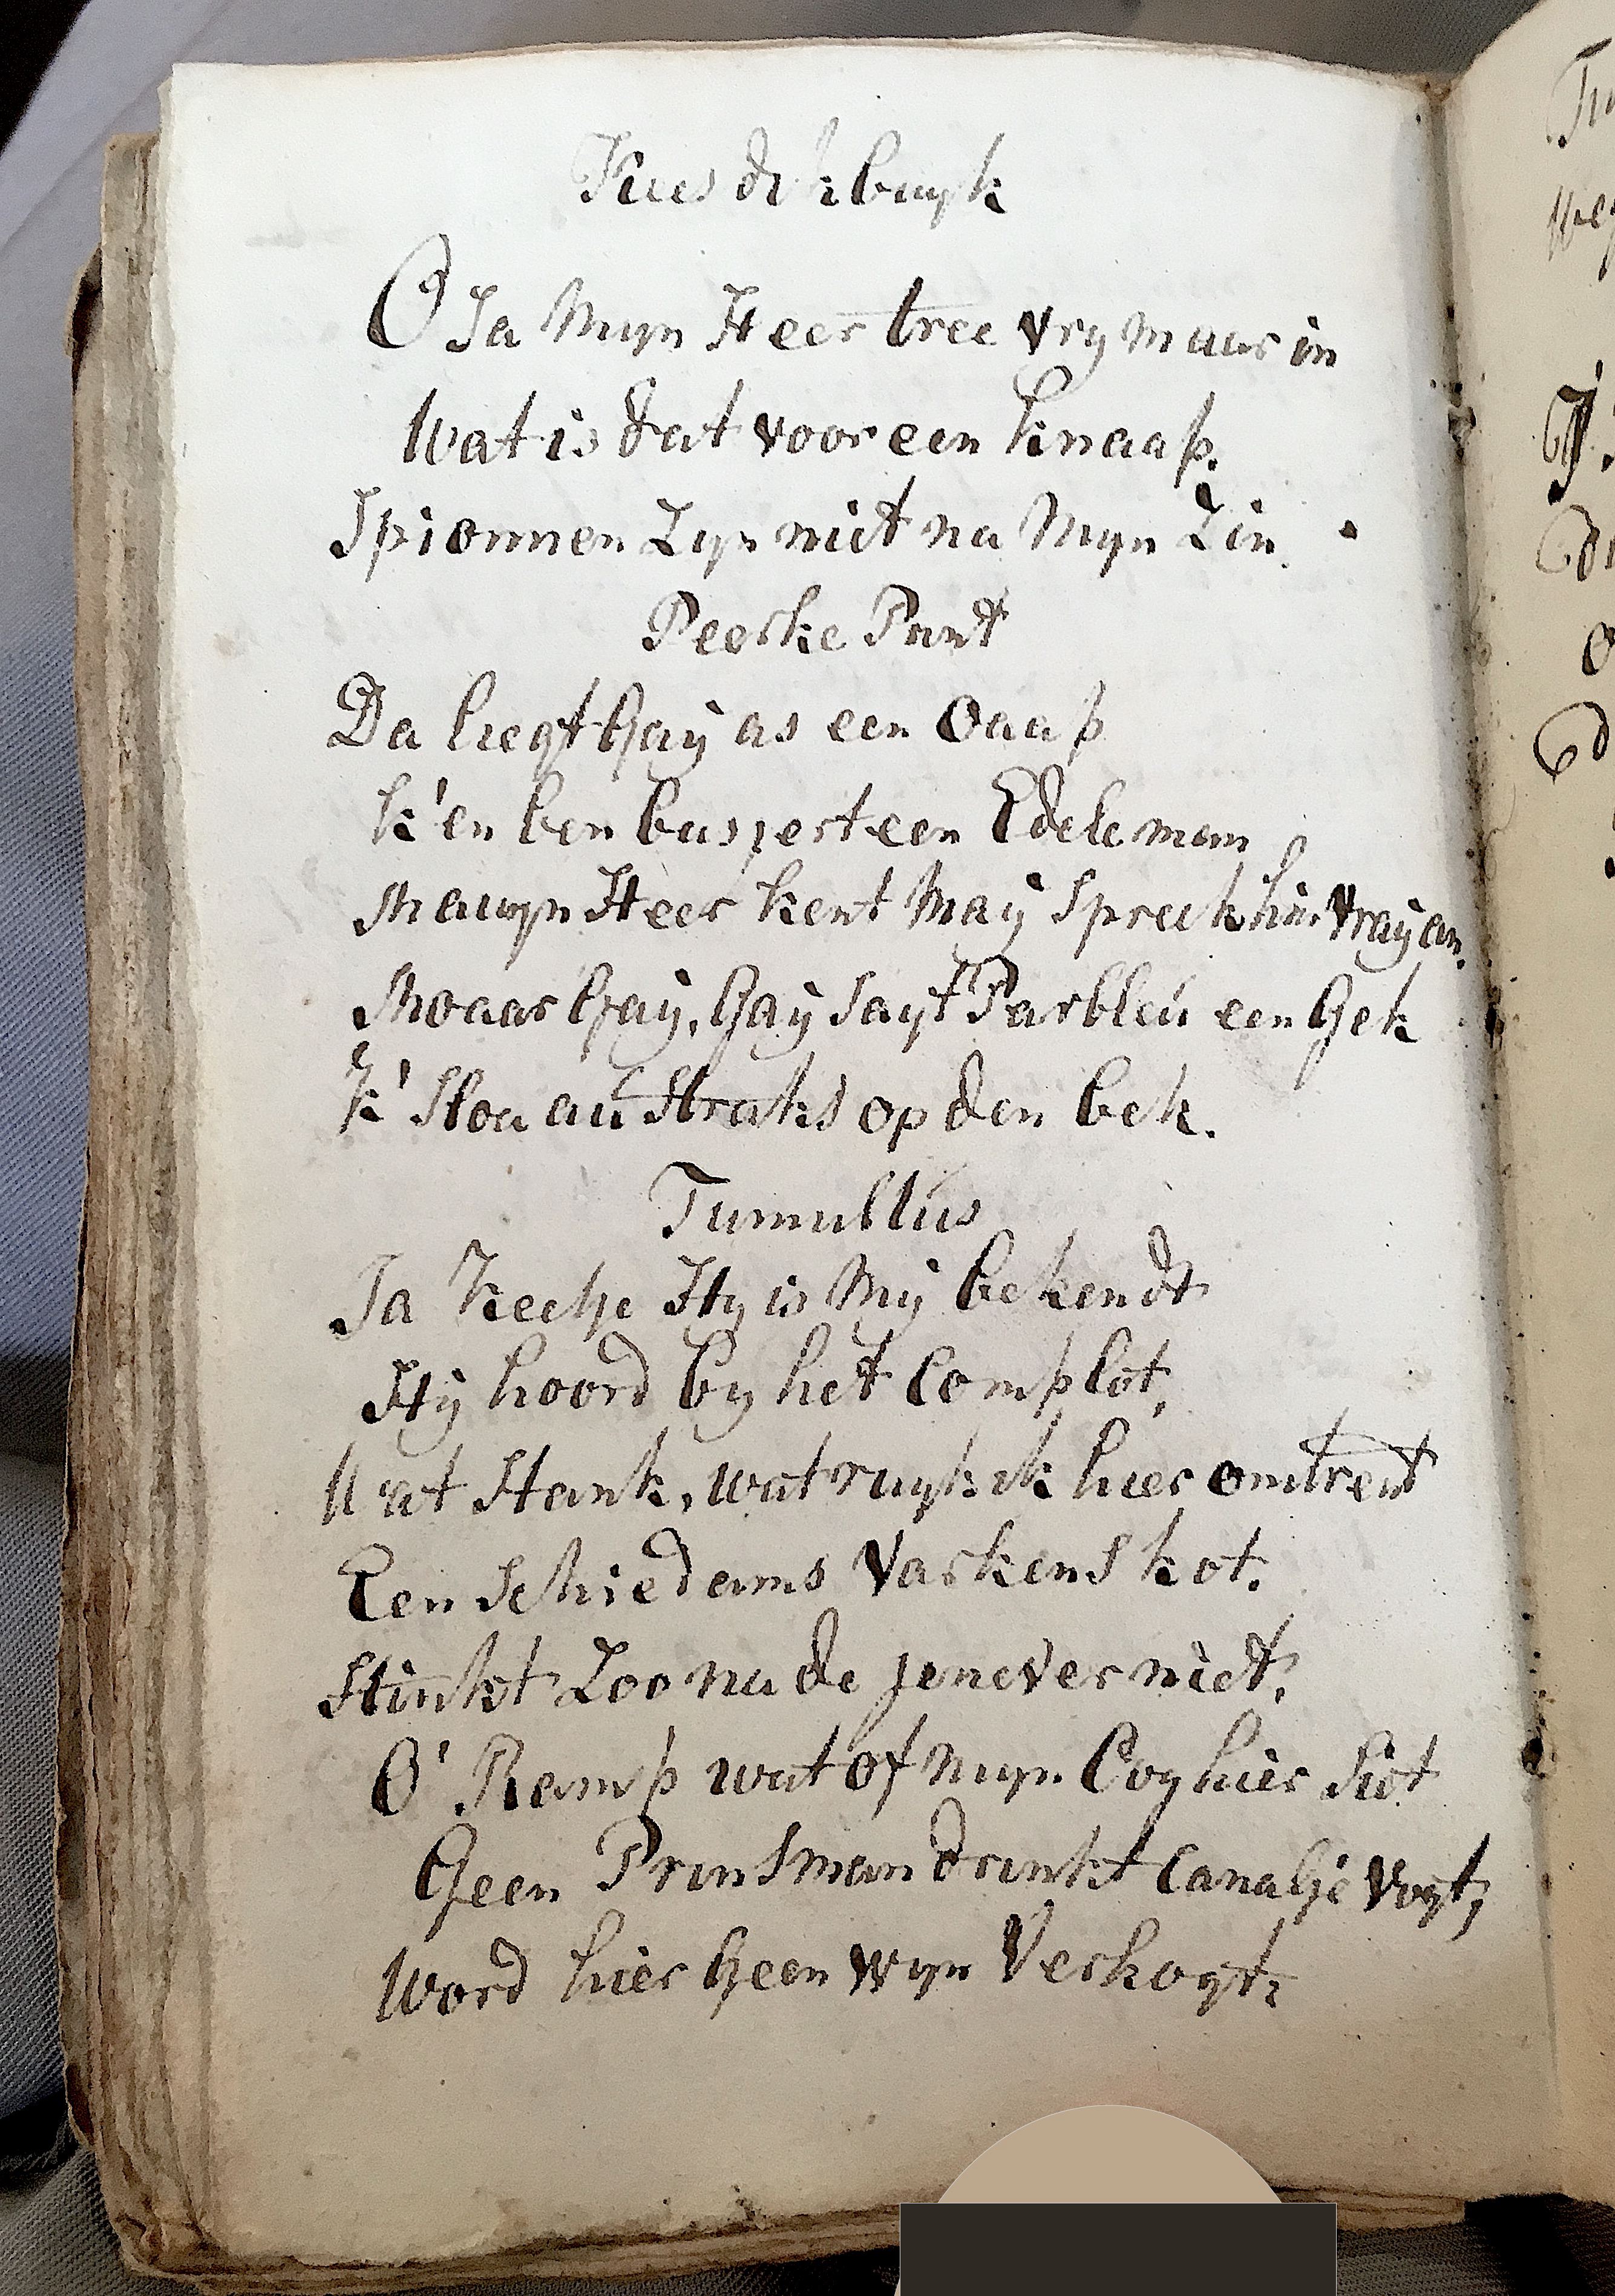 Kees dikbuyk
O Ja Mijn Heer tree vry maar in
Wat is dat voor een knaap.
Spionnen Zyn niet na Myn Zin.
Peerke Pant
Da liegt Gaÿ as een Oaap
k'en ben buspert een Edele man
Mauyn Heer kent Maÿ Spreek hier Vraÿ an.
Moaar Gaÿ, Gaÿ Sayt Parbleú een Gek
k' Sloa aú Straks op den bek.
Tumultús
Ja Keetje Hy is Mÿ bekendt
Hÿ hoord by het Complot,
Wat Stank, wat ruyk ik hier omtrent
Een Schiedams Varkens kot.
Stinkt Zoo na de jenever niet,
O' Ramp wat of myn Ooy hier Siet
Geen Prinsman drinkt Canalje Vogt,
Word hier Geen wyn Verkogt;